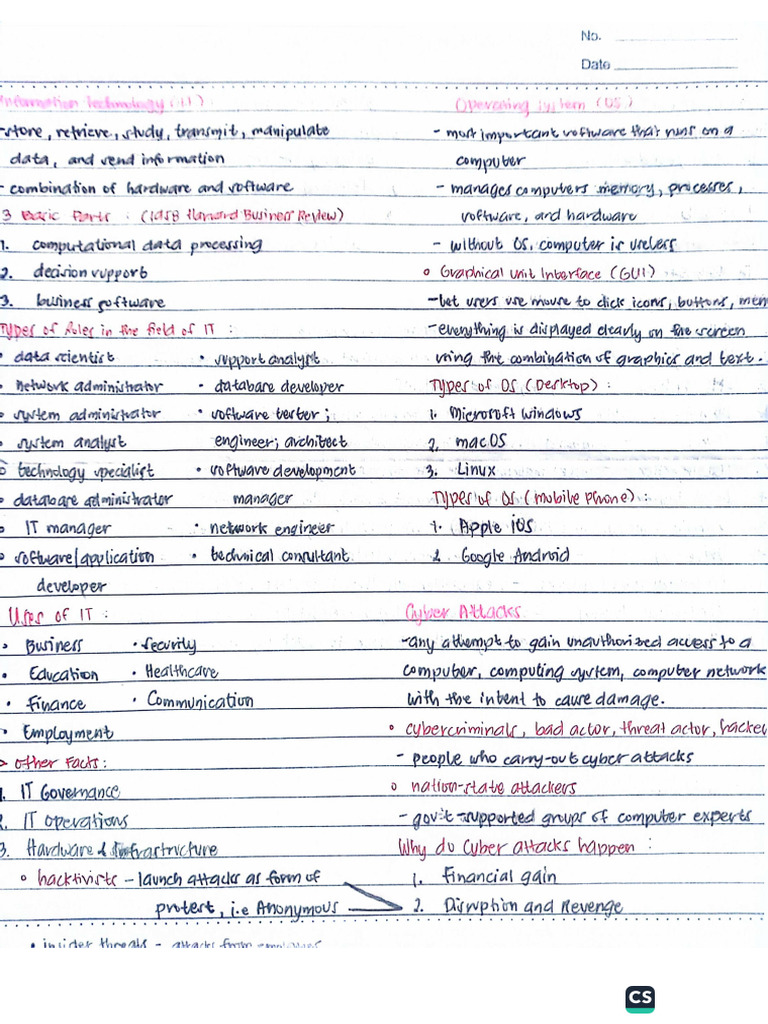 No.
Date
Information Technology (IT) :
-store, retrieve, study, transmit, manipulate
data, and send information
- combination of hardware and software
3 Basic Parts : (1958 Harvard Business Review)
1. computational data processing
2. decision support
3. business software
Types of Roles in the field of IT :
• data scientist
• network administrator
• system administrator
• system analyst
• technology specialist
• database administrator
• IT manager
• software/application
developer
• support analyst
• database developer
• software tester;
engineer; architect
• software development
manager
• network engineer
• technical consultant
Uses of IT :
• Business
• Education
• Finance
• Employment
• security
• Healthcare
• Communication
> Other Facts :
1. IT Governance
2. IT Operations
3. Hardware & Infrastructure
Operating System (OS)
- most important software that runs on a
computer
- manages computers memory, processes,
software, and hardware
- without OS, computer is useless
° Graphical unit Interface (GUI)
-let users use mouse to click icons, buttons, men
-everything is displayed clearly on the screen
using the combination of graphics and text.
Types of OS (Desktop) :
1. Microsoft windows
2. macOS
3. Linux
Types of OS (mobile phone) :
1. Apple iOS
2. Google Android
Cyber Attacks
-any attempt to gain unauthorized access to a
computer, computing system, computer network
with the intent to cause damage.
° cybercriminals, bad actor, threat actor, hacker
- people who carry-out cyber attacks
° nation-state attackers
- gov't-supported groups of computer experts
Why do Cyber attacks happen :
1. Financial gain
2. Disruption and Revenge
° hacktivists - launch attacks as form of
protest, i.e Anonymous
• insider threats - attacks from employees
CS